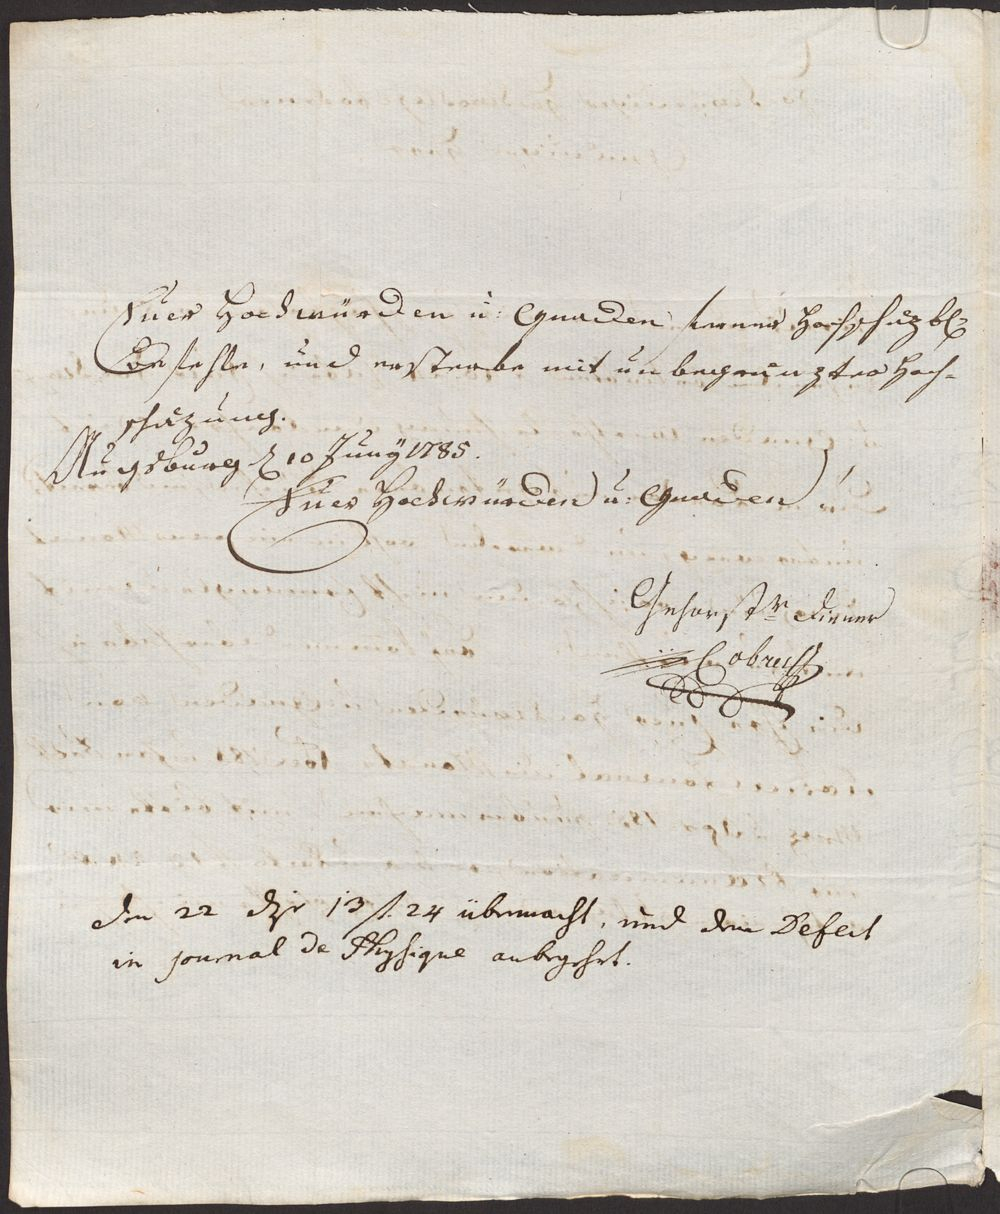 Euer Hochwürden u: Gnaden ferner Hochschäzbl.
Befehle, und ersterbe mit unbegränzter Hoch-
schäzung.
Augsburg d 10 Juny 1785.
Euer Hochwürden u: Gnaden
Gehorstr diener
Cobres
den 22 dzr 13 f. 24 übermacht, und den Defect
in journal de Physique anbegehrt.